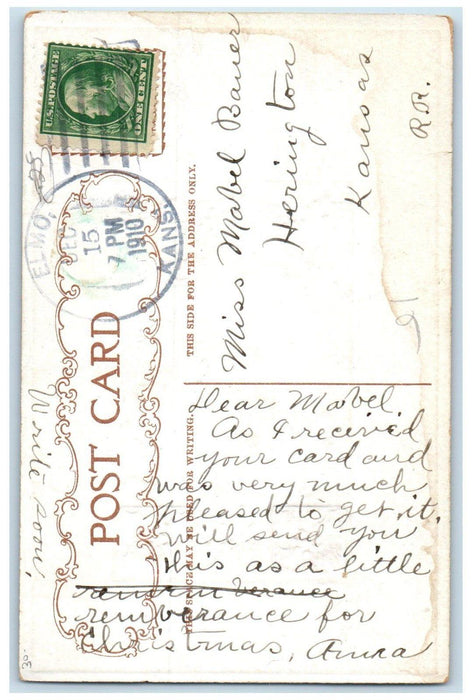 U.S. POSTAGE
ONE CENT
ELMO,
KANS.
15
7 PM
1910
POST CARD
THIS SIDE FOR THE ADDRESS ONLY.
Miss Mabel Bauer
Herington
Kansas
R.R.
THIS SPACE MAY BE USED FOR WRITING.
Dear Mabel,
As I received
your card and
was very much
pleased to get it,
will send you
this as a little
remberance for
Christmas, Anna
Write soon,
30-